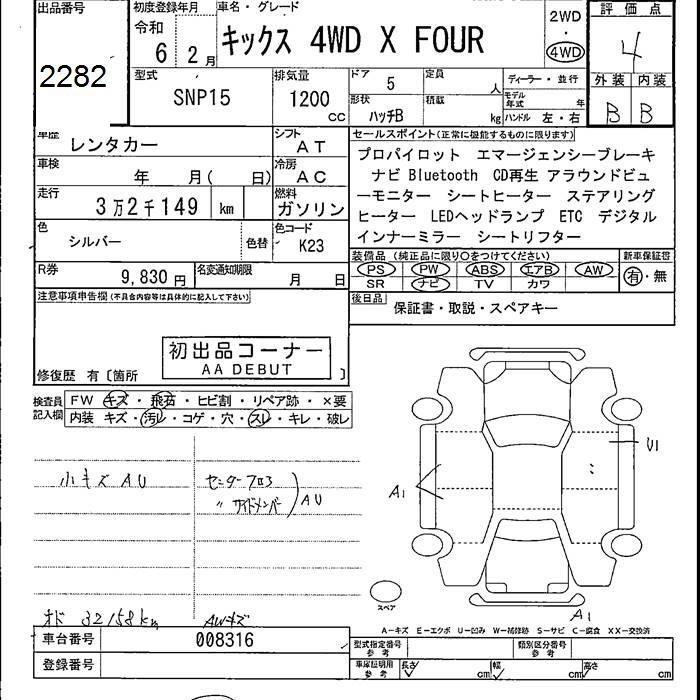 出品番号
2282
初度登録年月
令和
6 2月
車名・グレード
キックス 4WD X FOUR
2WD
・
4WD
評価点
4
外装 内装
B B
型式
SNP15
排気量
1200
CC
ドア 5
定員 人
形状 ハッチB
積載 kg
ディーラー・並行
モデル年式 年
ハンドル 左・右
車歴 レンタカー
シフト
AT
車検 年 月( 日)
冷房
AC
走行 3万2千149 km
燃料
ガソリン
色 シルバー 色替
色コード
K23
R券 9,830円
名変通知期限 月 日
セールスポイント(正常に機能するものに限ります)
プロパイロット エマージェンシーブレーキ
ナビ Bluetooth CD再生 アラウンドビュ
ーモニター シートヒーター ステアリング
ヒーター LEDヘッドランプ ETC デジタル
インナーミラー シートリフター
装備品(純正品に限り○をつけてください)
PS PW ABS エアB AW
SR ナビ TV カワ
新車保証書
有・無
後日品
保証書・取説・スペアキー
注意事項申告欄(不具合内容等は具体的に記入して下さい)
初出品コーナー
AA DEBUT
修復歴 有〔箇所 〕
検査員記入欄
FW キズ・飛石・ヒビ割・リペア跡・×要
内装 キズ・汚レ・コゲ・穴・スレ・キレ・破レ
小キズ AU
センターフロア
〃 サイドメンバー
AU
オド 32158km
AWキズ
A1
U1
A1
スペア
A―キズ E―エクボ U―凹み W―補修跡 S―サビ C―腐食 XX―交換済
車台番号 008316
登録番号
型式指定番号
参考
類別区分番号
参考
車庫証明用
参考
長さ cm 幅 cm 高さ cm